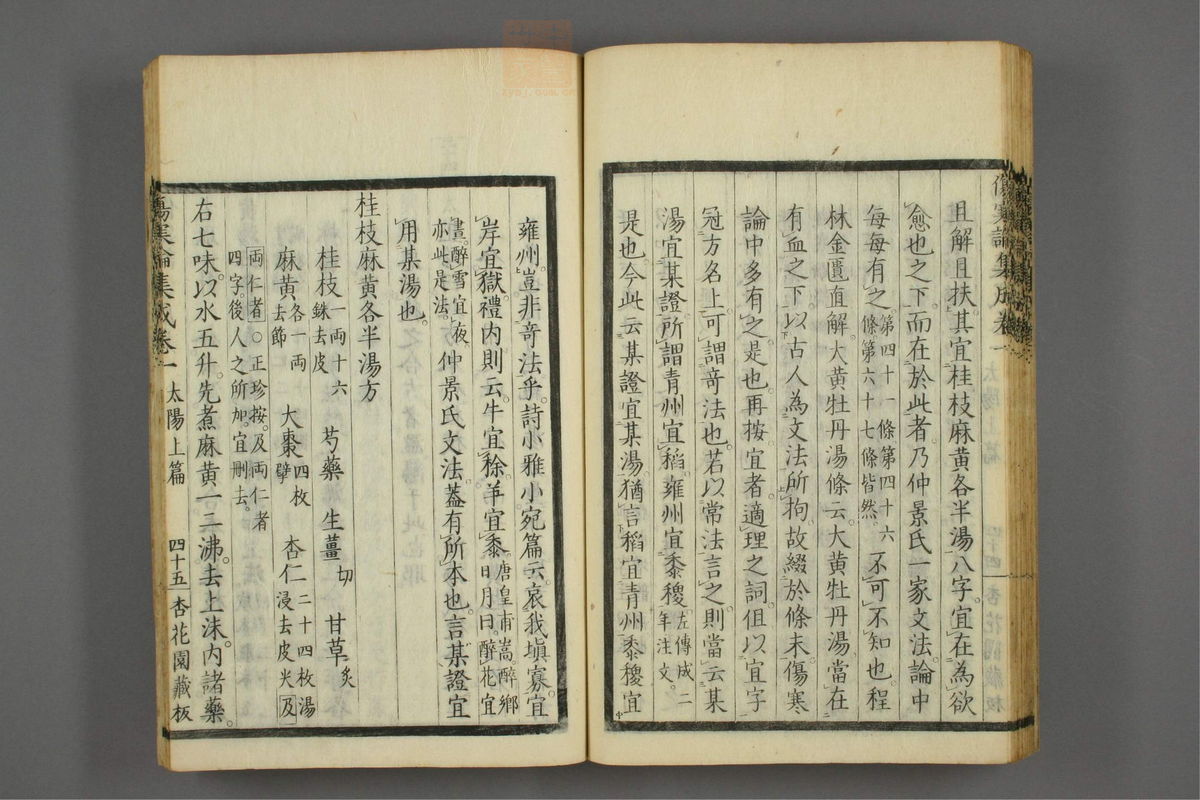 且解且扶其宜桂枝麻黄各半湯八字宜在為欲
愈也之下而在於此者乃仲景氏一家文法論中
每每有之第四十一條第四十六條第六十七條皆然不可不知也程
林金匱直解大黄牡丹湯條云大黄牡丹湯當在
有血之下以古人為文法所拘故綴於條末傷寒
論中多有之是也再按宜者適理之詞但以宜字
冠方名上可謂奇法也若以常法言之則當云某
湯宜某證所謂青州宜稻雍州宜黍稷左傳成二年注文
是也今此云某證宜某湯猶言稻宜青州黍稷宜
傷寒論集成卷一
雍州豈非奇法乎詩小雅小宛篇云哀我填寡宜
岸宜獄禮內則云牛宜稌羊宜黍唐皇甫嵩醉鄉日月曰醉花宜
晝醉雪宜夜亦此是法仲景氏文法蓋有所本也言某證宜
用某湯也
桂枝麻黄各半湯方
桂枝一兩十六銖去皮 芍藥 生薑切 甘草炙
麻黄各一兩去節 大棗四枚擘 杏仁二十四枚湯浸去皮尖及
両仁者○正珍按及両仁者四字後人之所加宜刪去
右七味以水五升先煮麻黄一二沸去上沫內諸藥
傷寒論集成卷一 太陽上篇 四十五 杏花園藏板